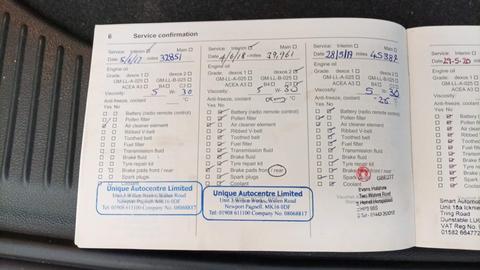 6 Service confirmation
Service: Interim Main
Date miles 32851
Engine oil
Grade: dexos 1 dexos 2
GM-LL-A-025 GM-LL-B-025
ACEA A3 B4 C
Viscosity: 5 W- 30
Anti-freeze, coolant °C
Yes No
Battery (radio remote control)
Pollen filter
Air cleaner element
Ribbed V-belt
Toothed belt
Fuel filter
Transmission fluid
Brake fluid
Tyre repair kit
Brake pads front / rear
Spark plugs
Coolant
Unique Autocentre Limited
Unit 3 Willen Works, Willen Road
Newport Pagnell. MK16 0DF
Tel: 01908 611100 Company No. 08068817
Service: Interim Main
Date 4/6/18 miles 39,961
Engine oil
Grade: dexos 1 dexos 2
GM-LL-A-025 GM-LL-B-025
ACEA A3 B4 C
Viscosity: 5 W- 30
Anti-freeze, coolant °C
Yes No
Battery (radio remote control)
Pollen filter
Air cleaner element
Ribbed V-belt
Toothed belt
Fuel filter
Transmission fluid
Brake fluid
Tyre repair kit
Brake pads front / rear
Spark plugs
Coolant
Unique Autocentre Limited
Unit 3 Willen Works, Willen Road
Newport Pagnell. MK16 0DF
Tel: 01908 611100 Company No. 08068817
Service: Interim Main
Date 28/5/19 miles
Engine oil
Grade: dexos 1 dexos 2
GM-LL-A-025 GM-LL-B-025
ACEA A3 B4 C
Viscosity: 5 W- 30
Anti-freeze, coolant -25 °C
Yes No
Battery (radio remote control)
Pollen filter
Air cleaner element
Ribbed V-belt
Toothed belt
Fuel filter
Transmission fluid
Brake fluid
Tyre repair kit
Brake pads front / rear
Spark plugs
Coolant
Evans Halshaw
Two Waters Road
Hemel Hempstead
HP3 9BS
Service: Interim
Date 29-5-20
Engine oil
Grade: dexos
GM-LL-A-025
ACEA A3
Viscosity:
Anti-freeze, coolant
Yes No
Battery
Pollen
Air cle
Ribbed
Toothed
Fuel
Trans
Brake
Tyre
Brake
Spark
Coolant
Smart Automo
Unit 16a Icknie
Tring Road
Dunstable LU
VAT Reg No.
01582 664772